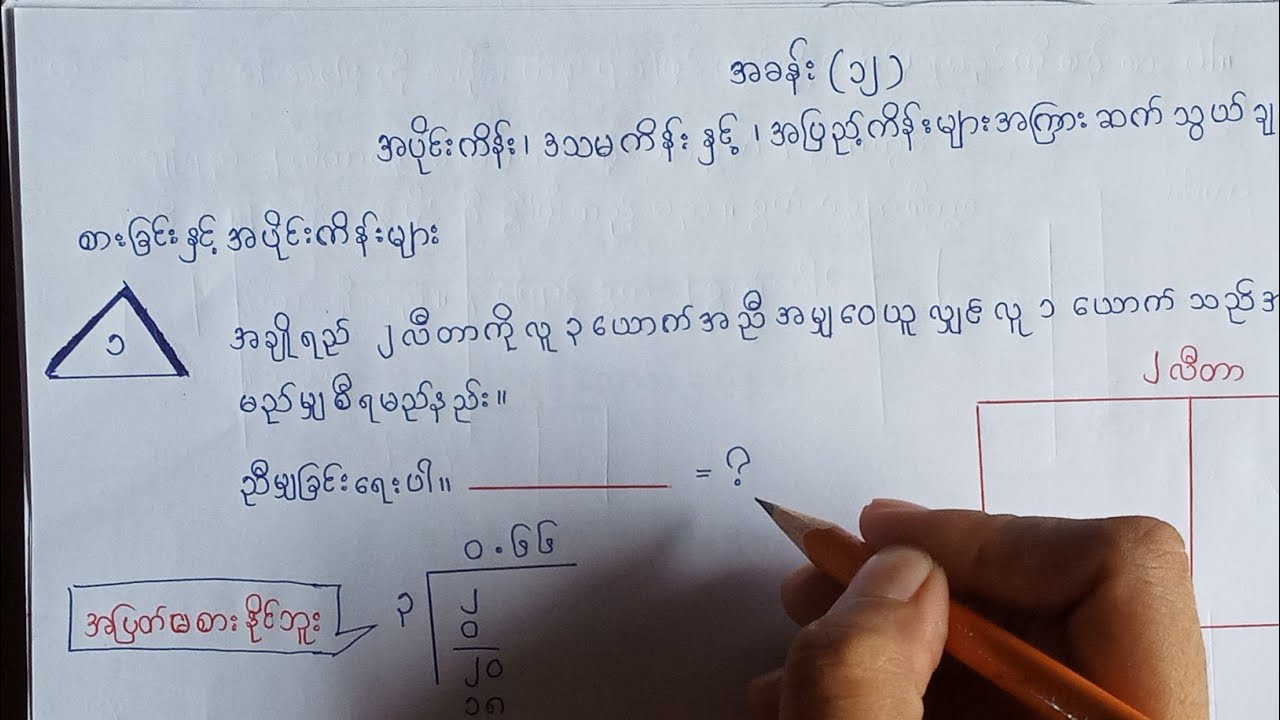 အခန်း (၁၂)
အပိုင်းကိန်း၊ ဒသမကိန်း နှင့် ၊ အပြည့်ကိန်းများအကြား ဆက်သွယ်ချ
စားခြင်းနှင့် အပိုင်းကိန်းများ
၁
အချိုရည် ၂ လီတာကို လူ ၃ ယောက် အညီအမျှ ဝေယူလျှင် လူ ၁ ယောက် သည် အ
မည်မျှ စီရမည်နည်း။
၂ လီတာ
ညီမျှခြင်းရေးပါ။ = ?
၀.၆၆
အပြတ်မစားနိုင်ဘူး
၃
၂
၀
၂၀
၁၈